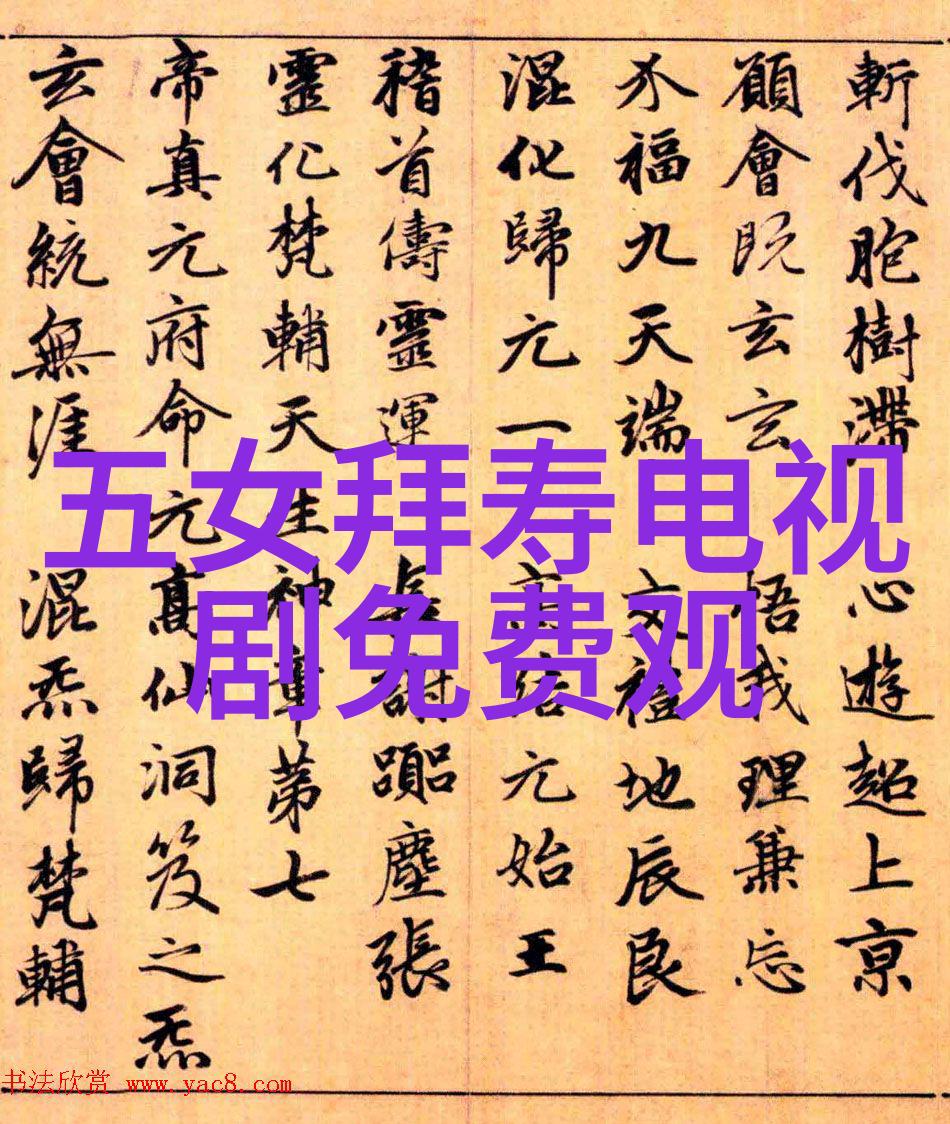 斬伐胞樹滯心遊超上京
願會既玄玄悟我理兼忘
介福九天端交禮地辰良
混化歸元一高结元始王
稽首儔靈運長謝躡塵張
靈化梵輔天生神章第七
帝真元府命元高仙洞笈之炁
玄會統無涯混炁歸梵輔
五女拜寿电视
剧免费观
书法欣赏 www.yac8.com